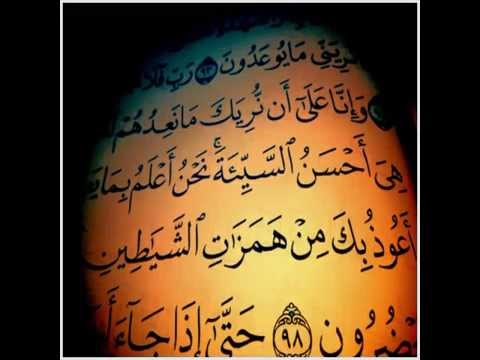 مَا يُوعَدُونَ ٩٣ رَبِّ فَلَا
وَإِنَّا عَلَىٰٓ أَن نُّرِيَكَ مَا نَعِدُهُمْ
هِىَ أَحْسَنُ ٱلسَّيِّئَةَ ۚ نَحْنُ أَعْلَمُ بِمَا
أَعُوذُ بِكَ مِنْ هَمَزَٰتِ ٱلشَّيَٰطِينِ
ضُرُونِ ٩٨ حَتَّىٰٓ إِذَا جَآءَ أَ